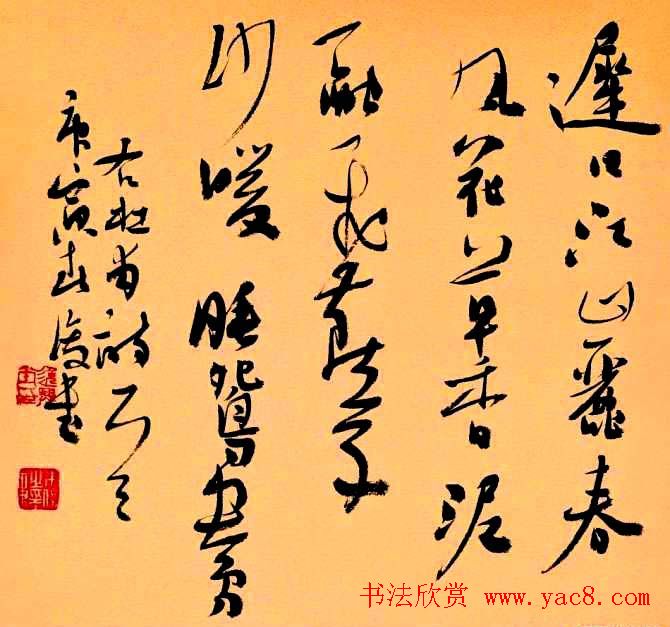 遲日江山麗春
風花草香泥
融飛燕子
沙暖睡鴛鴦
右杜甫詩
庚寅春書
书法欣赏 www.yac8.com